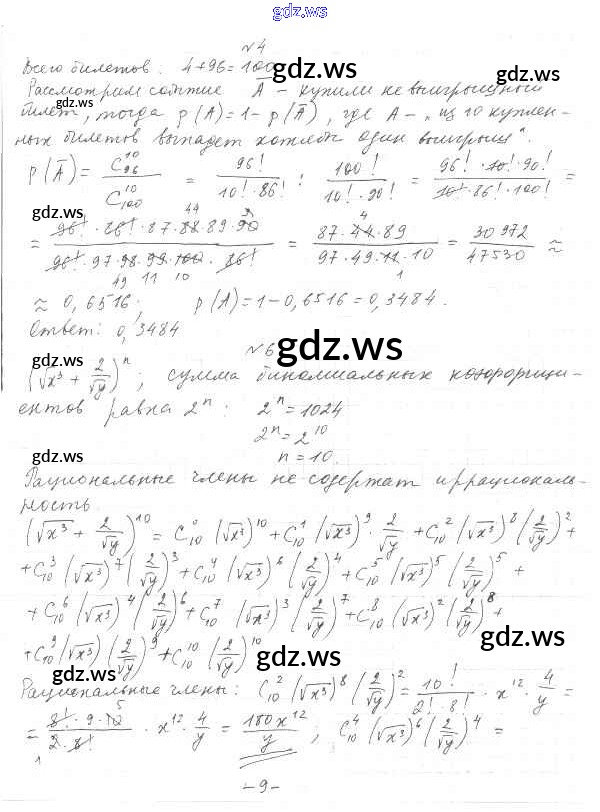 gdz.ru
№4
Всего билетов: 4+96=100
Рассмотрим событие Ā - купили не выигрышный
билет, тогда p(A)=1-p(Ā), где A - "из 10 куплен-
ных билетов выпадет хотябы один выигрыш".
p(Ā) = C₉₆¹⁰/C₁₀₀¹⁰ = 96!/(10!·86!) : 100!/(10!·90!) = (96!·10!·90!)/(10!·86!·100!) =
= (96!·86!·87·88·89·90)/(96!·97·98·99·100·86!) = (87·44·89)/(97·49·11·10) = 30972/47530 ≈
≈ 0,6516; p(A)=1-0,6516=0,3484.
Ответ: 0,3484
№6
(√x³ + 2/√y)ⁿ; сумма биномиальных коэффици-
ентов равна 2ⁿ: 2ⁿ=1024
2ⁿ=2¹⁰
n=10.
Рациональные члены не содержат иррациональ-
ность.
(√x³ + 2/√y)¹⁰ = C₁₀⁰(√x³)¹⁰ + C₁₀¹(√x³)⁹·2/√y + C₁₀²(√x³)⁸(2/√y)² +
+ C₁₀³(√x³)⁷(2/√y)³ + C₁₀⁴(√x³)⁶(2/√y)⁴ + C₁₀⁵(√x³)⁵(2/√y)⁵ +
+ C₁₀⁶(√x³)⁴(2/√y)⁶ + C₁₀⁷(√x³)³(2/√y)⁷ + C₁₀⁸(√x³)²(2/√y)⁸ +
+ C₁₀⁹(√x³)(2/√y)⁹ + C₁₀¹⁰(2/√y)¹⁰
Рациональные члены: C₁₀²(√x³)⁸(2/√y)² = 10!/(2!·8!)·x¹²·4/y =
= (8!·9·10)/(2·8!)·x¹²·4/y = 180x¹²/y; C₁₀⁴(√x³)⁶(2/√y)⁴ =
-9-
gdz.ru
gdz.ru
gdz.ru
gdz.ru
gdz.ru
gdz.ru
gdz.ru
gdz.ru
gdz.ru
gdz.ru
gdz.ru
gdz.ru
gdz.ru